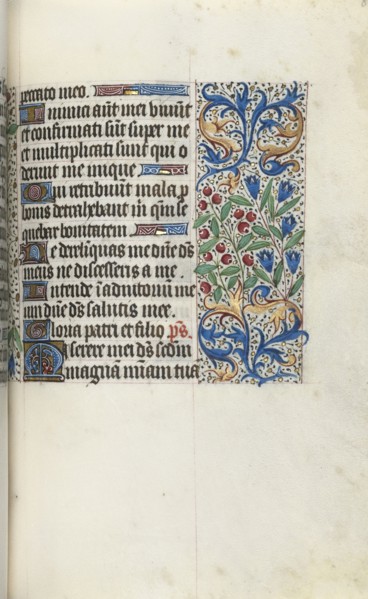 peccato meo.
Inimici aūt mei viuūt
et confirmati sūt super me
et multiplicati sunt qui o
derunt me inique
Qui retribuūt mala p
bonis detrahebant m̄ qm̄ se
quebar bonitatem
Ne derelīquas me dn̄e dс̄
meus ne discesseris a me.
Intende ī adiutoriū me
um dn̄e ds̄ salutis mee.
Gloria patri et filio ps̄.
Miserere mei ds̄ scdm̄
magnā mīam tuā